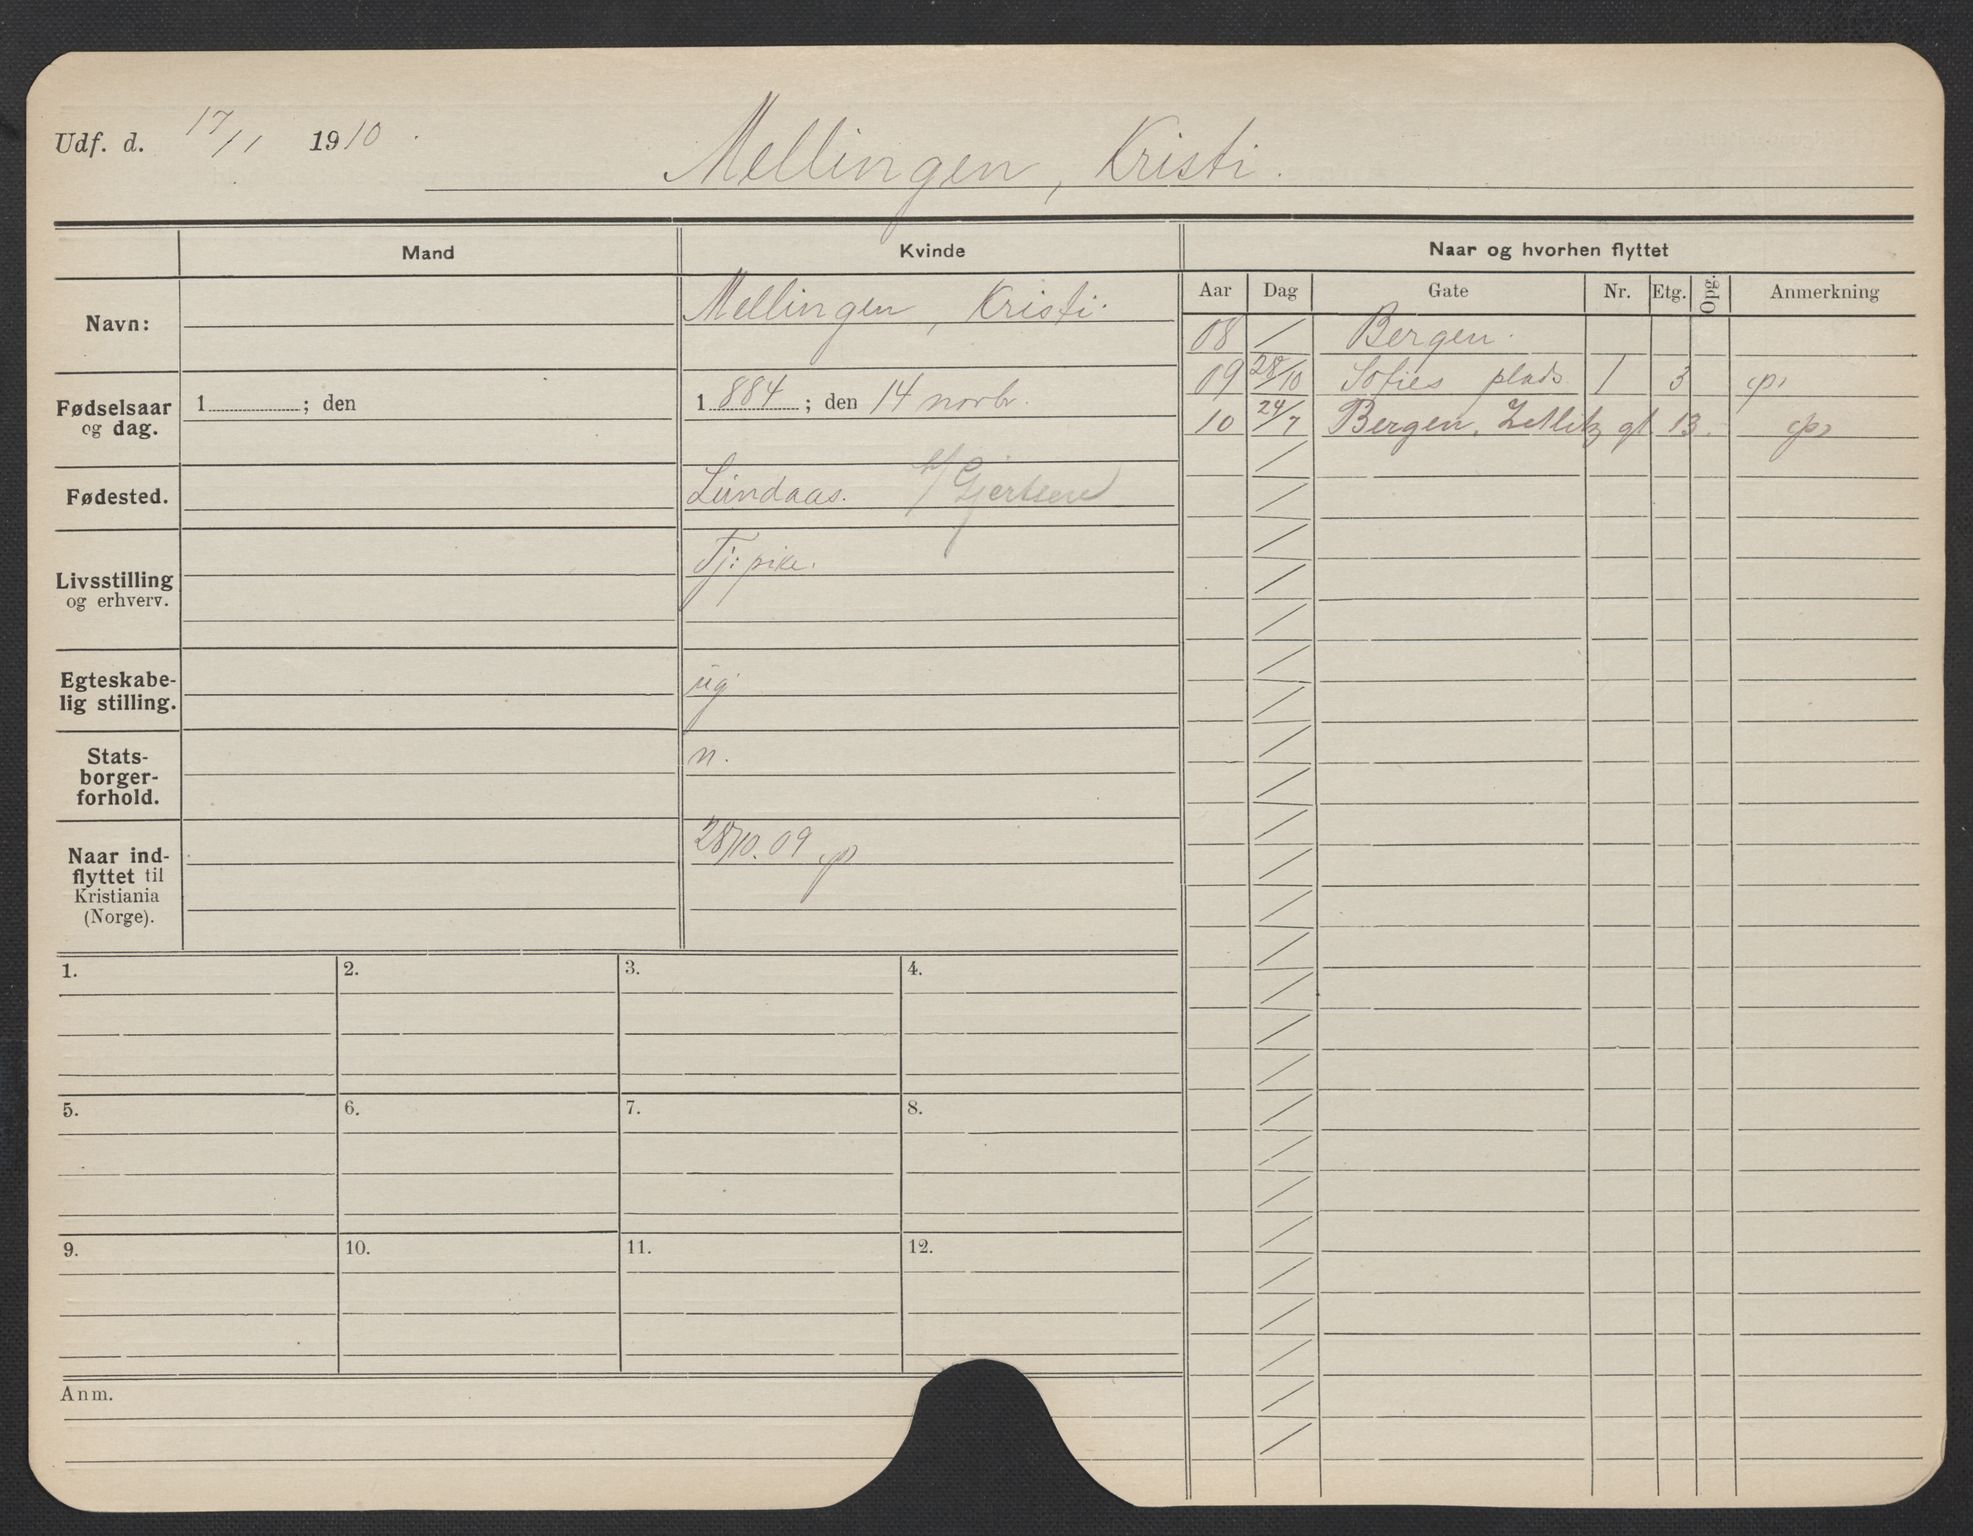 Udf. d. 17/11 1910.
Mellingen, Kristi.
Mand
Kvinde
Naar og hvorhen flyttet
Navn:
Mellingen, Kristi.
Aar Dag Gate Nr. Etg. Opg. Anmerkning
08 / Bergen.
09 28/10 Sofies plads 1 3 cp,
10 24/7 Bergen, Zetlitz gt 13. cp,
Fødselsaar
og dag.
1 ; den
1 884 ; den 14 novbr.
Fødested.
Lindaas. Gjertsen
Livsstilling
og erhverv.
Tj: pike.
Egteskabe-
lig stilling.
ug
Stats-
borger-
forhold.
n.
Naar ind-
flyttet til
Kristiania
(Norge).
28/10. 09 cp
1. 2. 3. 4.
5. 6. 7. 8.
9. 10. 11. 12.
Anm.